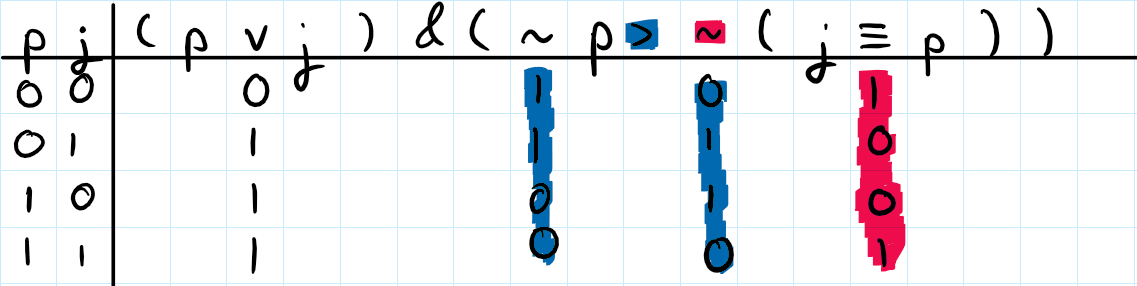 p j ( p v j ) & ( ~ p > ~ ( j ≡ p ) )
0 0 0 1 0 1
0 1 1 1 1 0
1 0 1 0 1 0
1 1 1 0 0 1